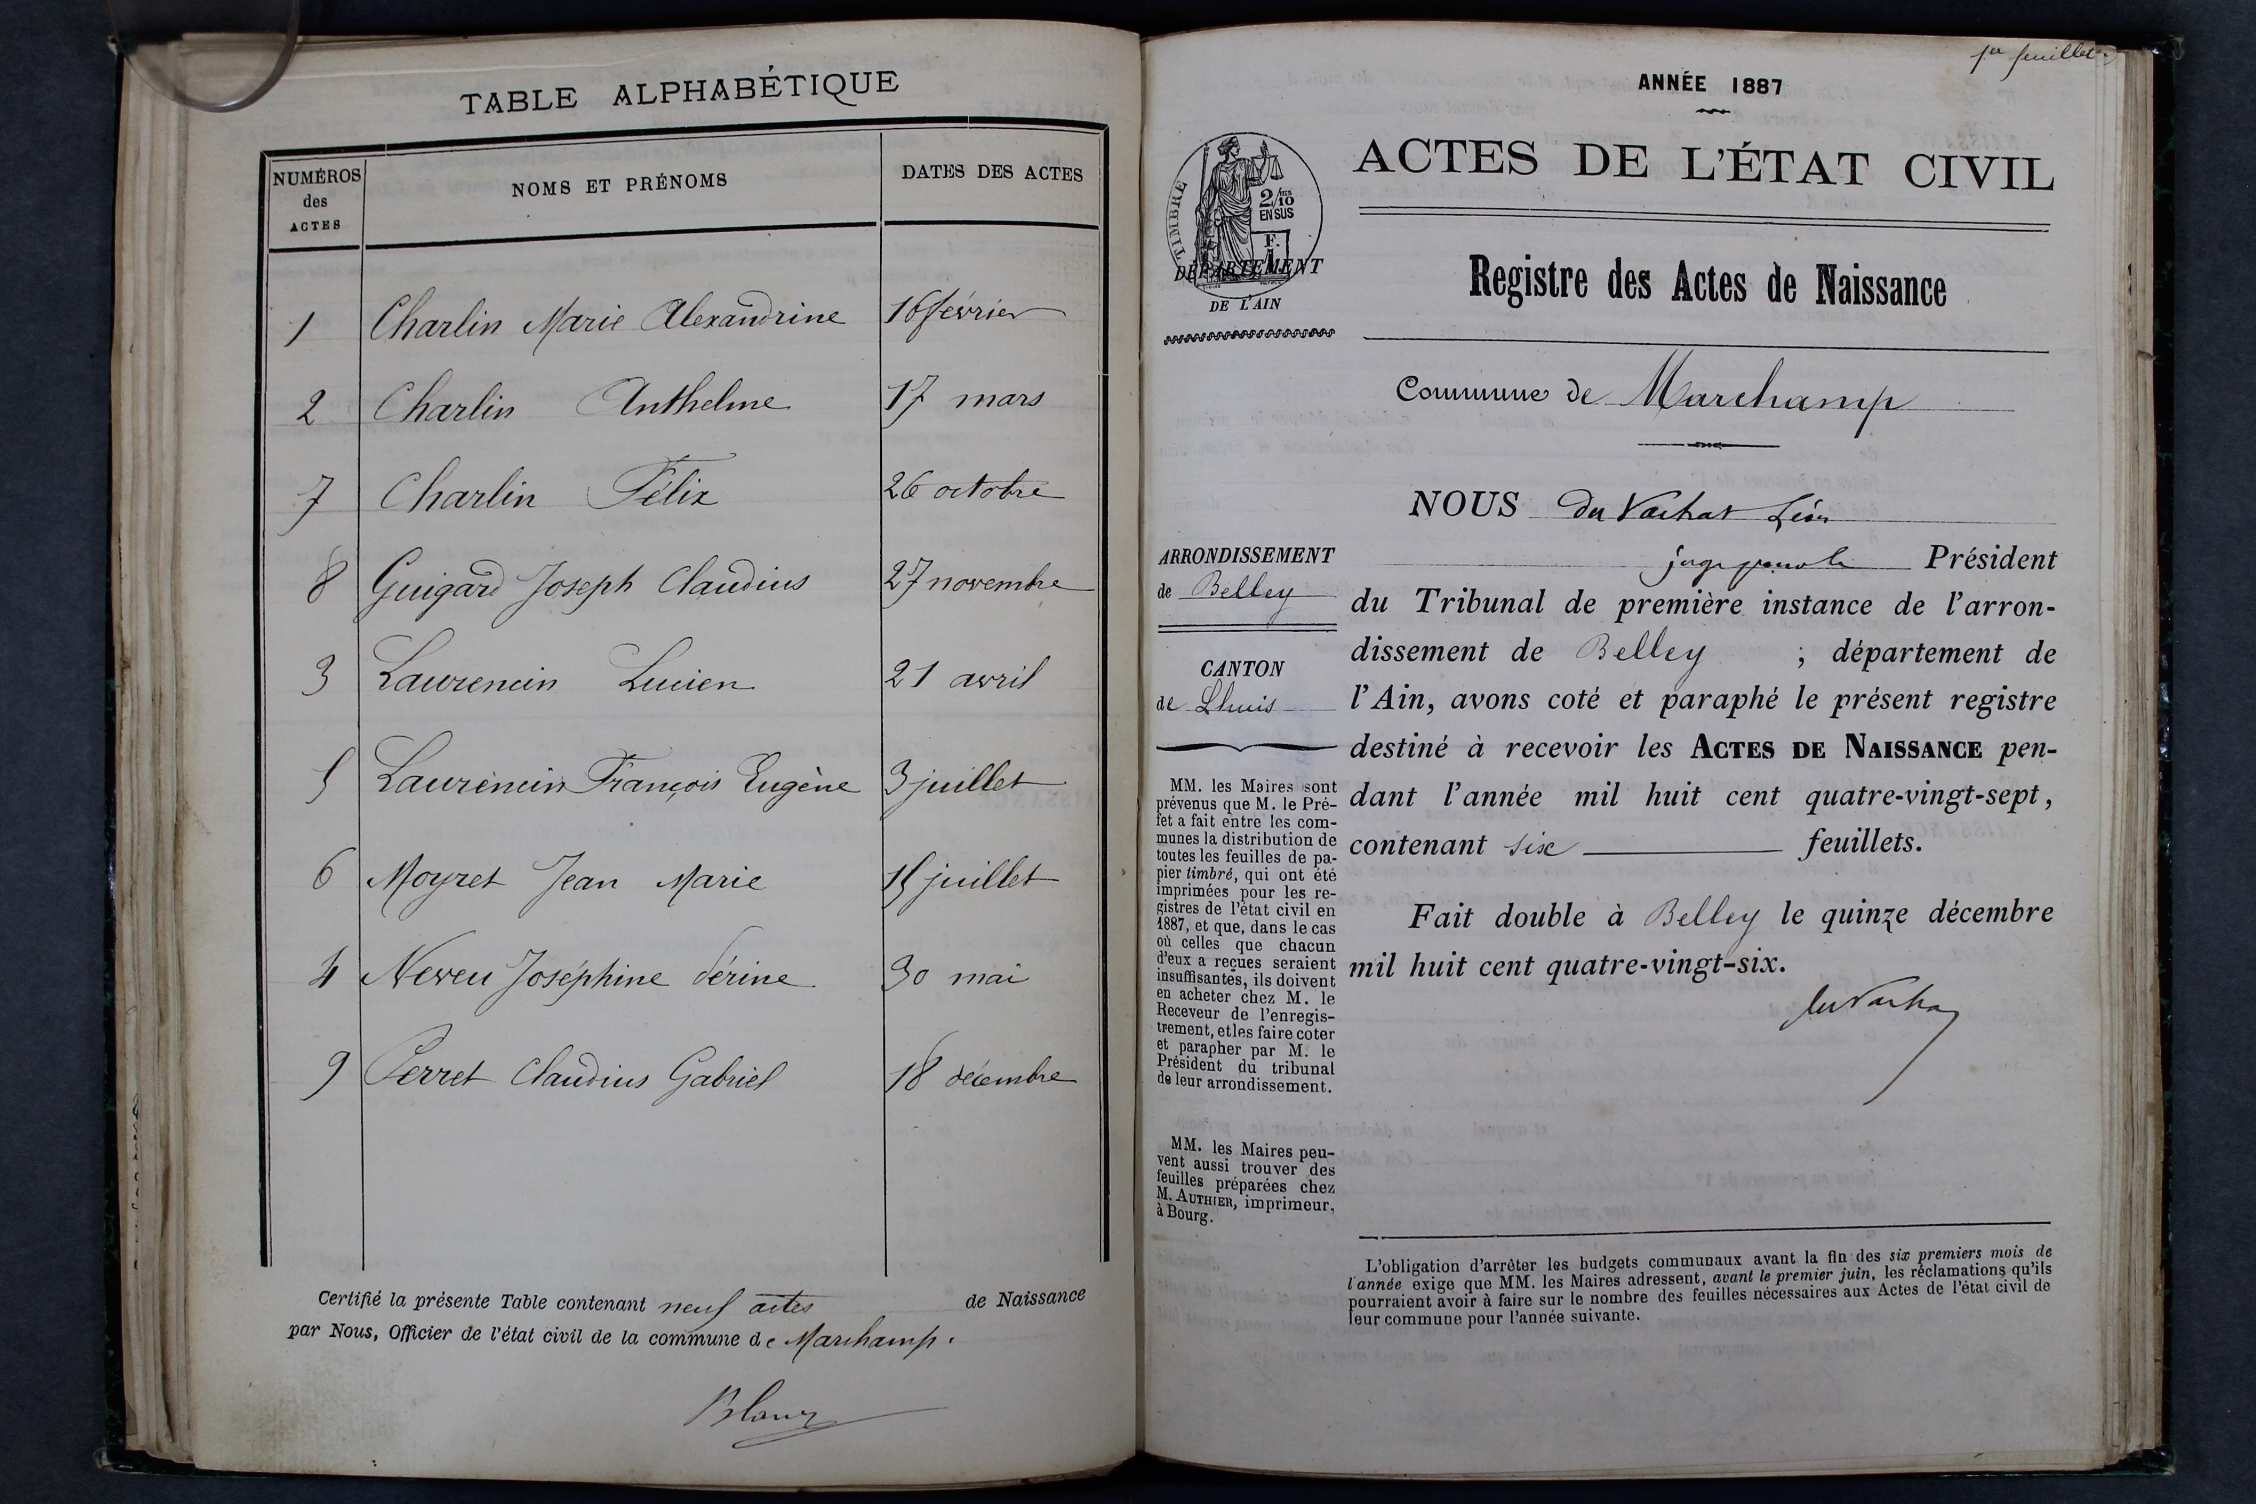 TABLE ALPHABÉTIQUE
NUMÉROS
des
ACTES
NOMS ET PRÉNOMS
DATES DES ACTES
1 Charlin Marie Alexandrine 16 février
2 Charlin Anthelme 17 mars
7 Charlin Félix 26 octobre
8 Guigard Joseph Claudius 27 novembre
3 Laurencin Lucien 21 avril
5 Laurencin François Eugène 3 juillet
6 Moyret Jean Marie 15 juillet
4 Neveu Joséphine Sérine 30 mai
9 Perret Claudius Gabriel 18 décembre
Certifié la présente Table contenant neuf actes de Naissance
par Nous, Officier de l'état civil de la commune de Marchamp.
1er feuillet
ANNÉE 1887
TIMBRE
2/10
EN SUS
F.
1
DÉPARTEMENT
DE L'AIN
ACTES DE L'ÉTAT CIVIL
Registre des Actes de Naissance
Commune de Marchamp
ARRONDISSEMENT
de Belley
CANTON
de Lhuis
MM. les Maires sont
prévenus que M. le Pré-
fet a fait entre les com-
munes la distribution de
toutes les feuilles de pa-
pier timbré, qui ont été
imprimées pour les re-
gistres de l'état civil en
1887, et que, dans le cas
où celles que chacun
d'eux a reçues seraient
insuffisantes, ils doivent
en acheter chez M. le
Receveur de l'enregis-
trement, et les faire coter
et parapher par M. le
Président du tribunal
de leur arrondissement.
MM. les Maires peu-
vent aussi trouver des
feuilles préparées chez
M. AUTHIER, imprimeur,
à Bourg.
NOUS du Vachat Léon
Président
du Tribunal de première instance de l'arron-
dissement de Belley ; département de
l'Ain, avons coté et paraphé le présent registre
destiné à recevoir les ACTES DE NAISSANCE pen-
dant l'année mil huit cent quatre-vingt-sept,
contenant six feuillets.
Fait double à Belley le quinze décembre
mil huit cent quatre-vingt-six.
du Vachat
L'obligation d'arrêter les budgets communaux avant la fin des six premiers mois de
l'année exige que MM. les Maires adressent, avant le premier juin, les réclamations qu'ils
pourraient avoir à faire sur le nombre des feuilles nécessaires aux Actes de l'état civil de
leur commune pour l'année suivante.